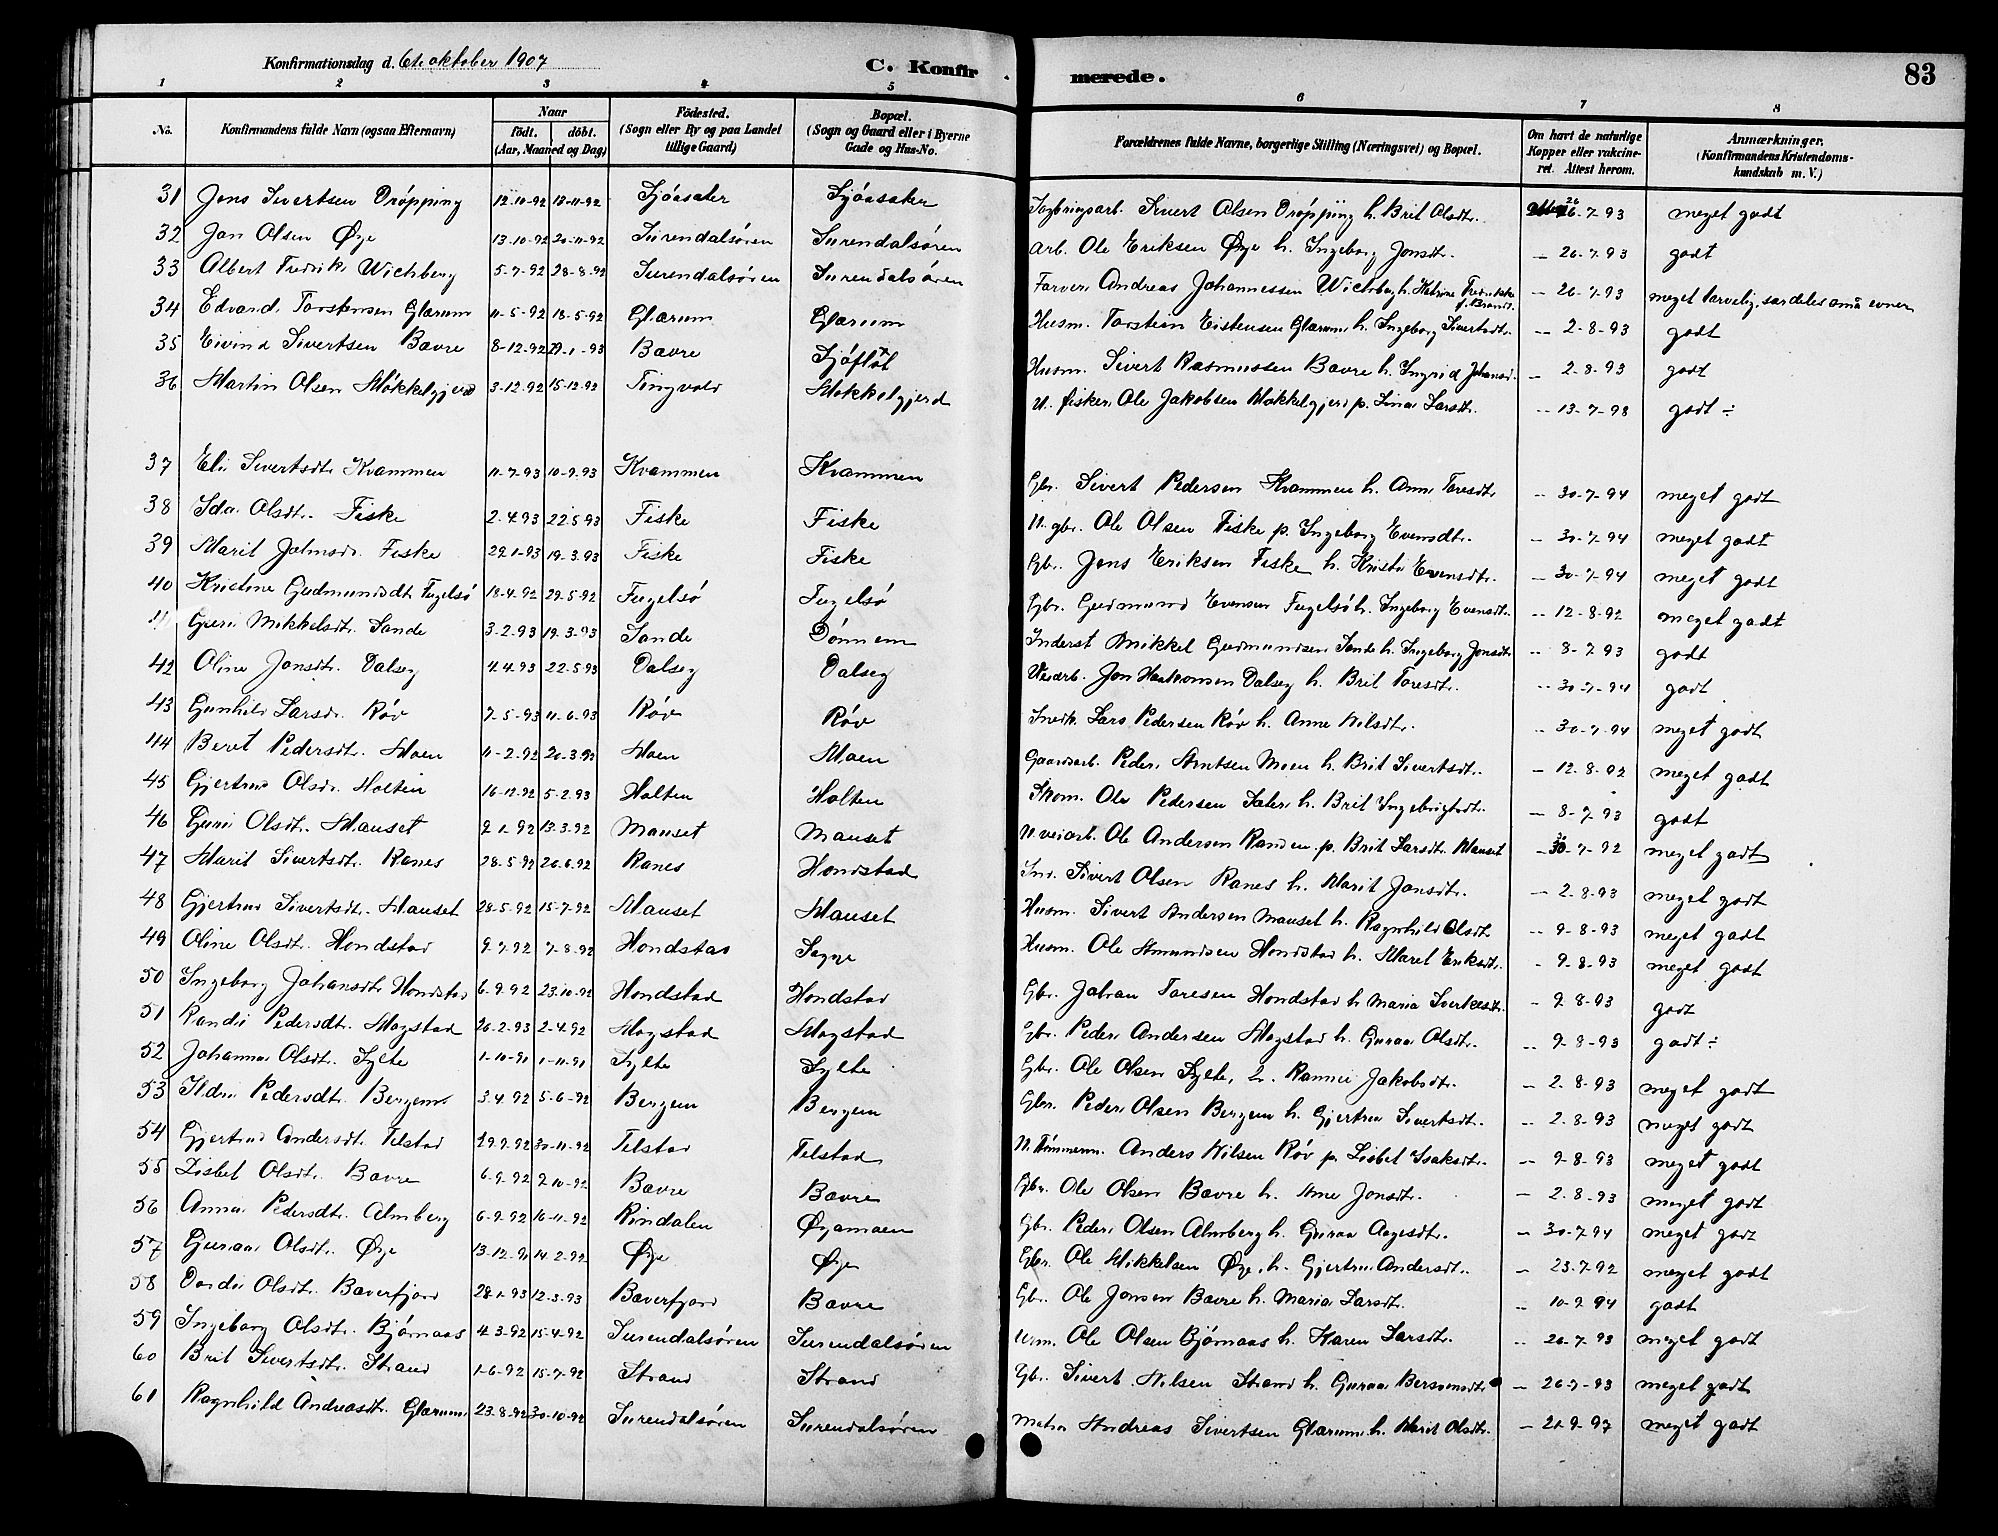 Konfirmationsdag d. 6te oktober 1907 C. Konfirmerede. 83
1 2 3 4 5 6 7 8
No. Konfirmandens fulde Navn (ogsaa Efternavn) Naar födt. döbt. (Aar, Maaned og Dag) Födested. (Sogn eller By og paa Landet tillige Gaard) Bopæl. (Sogn og Gaard eller i Byerne Gade og Hus-No. Forældrenes fulde Navne, borgerlige Stilling (Næringsvei) og Bopæl. Om havt de naturlige Kopper eller vakcineret. Attest herom. Anmærkninger. (Konfirmandens Kristendomskundskab m. V.)
31 Jens Sivertsen Drøpping 12-10-92 Sjøasæter Sjøasæter Sivert Olsen Drøpping h. Brit Olsdtr. 26-7-93 meget godt
32 Jon Olsen Øye 13-10-92 20-11-92 Surendalsøren Surendalsøren Arb. Ole Eriksen Øye h. Ingeborg Jonsdtr. - 26-7-93 godt
33 Albert Fredrik Wichberg 5-7-92 28-8-92 Surendalsøren Surendalsøren Farver Andreas Johannessen Wichberg h. Fredrikke f. Brandt - 26-7-93 meget tarvelig, særdeles små evner
34 Edvard Torstensen Glærum 11-5-92 18-5-92 Glærum Glærum Husm. Torstein Eistensen Glærum h. Ingeborg Sivertsdtr. - 2-8-93 godt
35 Eivind Sivertsen Bævre 8-12-92 29-1-93 Bævre Sjøfløt Husm. Sivert Rasmussen Bævre h. Ingrid Johansd. - 2-8-93 godt
36 Martin Olsen Møkkelgjerd 3-12-92 15-12-92 Tingvold Møkkelgjerd U. fisker Ole Jakobsen Møkkelgjerd p. Lina Larsdtr. - 13-7-98 godt ÷
37 Eli Sivertsdtr. Kvammen 11-7-93 10-9-93 Kvammen Kvammen Gbr. Sivert Pedersen Kvammen h. Anne Toresdtr. - 30-7-94 meget godt
38 Ida Olsdtr. Fiske 2-4-93 22-5-93 Fiske Fiske U. gbr. Ole Olsen Fiske p. Ingeborg Evensdtr. - 30-7-94 meget godt
39 Marit Johnsdr. Fiske 29-1-93 19-3-93 Fiske Fiske Gbr. Jons Eriksen Fiske h. Kristi Evensdtr. - 30-7-94 meget godt
40 Kristine Gudmundsdt. Fugelsø 18-4-92 29-5-92 Fugelsø Fugelsø Gbr. Gudmund Evensen Fugelsø h. Ingeborg Evensdt. - 12-8-92 meget godt
41 Guri Mikkelsdtr. Sande 3-2-93 19-3-93 Sande Dønnem Inderst Mikkel Gudmundsen Sande h. Ingeborg Jonsdtr. - 8-7-93 godt
42 Oline Jonsdtr. Dalseg 4-4-93 22-5-93 Dalseg Dalseg Veiarb. Jon Haakonsen Dalseg h. Brit Toresdtr. - 30-7-94 godt
43 Gunhild Larsdr. Røv 7-5-93 11-6-93 Røv Røv Snedk. Lars Pedersen Røv h. Anne Nilsdtr. - 30-7-94 meget godt
44 Beret Pedersdtr. Moen 11-2-92 20-3-92 Moen Moen Gaardarb. Peder Arntsen Moen h. Brit Sivertsdtr. - 12-8-92 meget godt
45 Gjertrud Olsdr. Holten 16-12-92 5-2-93 Holten Holten Skom. Ole Pedersen Sæter h. Brit Ingebrigtsdtr. - 8-7-93 godt
46 Guri Olsdtr. Mauset 9-1-92 13-3-92 Mauset Mauset U. veiarb. Ole Andersen Randen p. Brit Larsdtr. Mauset - 30-7-92 meget godt
47 Marit Sivertsdtr. Ranes 28-5-92 26-6-92 Ranes Hondstad Ind. Sivert Olsen Ranes h. Marit Jonsdtr. - 2-8-93 meget godt
48 Gjertrud Sivertsdtr. Mauset 28-5-92 15-7-92 Mauset Mauset Husm. Sivert Andersen Mauset h. Ragnhild Olsdt. - 9-8-93 meget godt
49 Oline Olsdtr. Hondstad 9-7-92 7-8-92 Hondstad Sogge Husm. Ole Amundsen Hondstad h. Maret Eriksdtr. - 9-8-93 meget godt
50 Ingeborg Johansdtr. Hondstad 6-9-92 23-10-92 Hondstad Hondstad Gbr. Johan Toresen Hondstad h. Maria Sverkesdtr. - 9-8-93 godt
51 Randi Pedersdtr. Mogstad 26-2-93 2-4-92 Mogstad Mogstad Gbr. Peder Andersen Mogstad h. Guraa Olsdtr. - 9-8-93 godt ÷
52 Johanna Olsdtr. Sylte 1-10-91 1-11-91 Sylte Sylte Gbr. Ole Olsen Sylte, h. Rannei Jakobsdtr. - 2-8-93 meget godt
53 Ildri Pedersdtr. Bergem 3-4-92 5-6-92 Bergem Bergem Gbr. Peder Olsen Bergem h. Gjertrud Sivertsdt. - 2-8-93 meget godt
54 Gjertrud Andersdt. Telstad 29-9-92 30-11-92 Telstad Telstad U. Tømmerm. Anders Nilsen Røv p. Lisbet Isaksdtr. - 9-8-93 meget godt
55 Lisbet Olsdtr. Bævre 6-9-92 9-10-92 Bævre Bævre Gbr. Ole Olsen Bævre h. Ane Jonsdtr. - 2-8-93 meget godt
56 Anna Pedersdtr. Almberg 6-9-92 16-11-92 Rindalen Øyamoen Gbr. Peder Olsen Almberg h. Guraa Aagesdtr. - 30-7-94 meget godt
57 Guraa Olsdtr. Øye 13-12-91 14-2-92 Øye Øye Gbr. Ole Mikkelsen Øye h. Gjertrud Andersdt. - 23-7-92 meget godt
58 Dordi Olsdtr. Bæverfjord 28-1-93 12-3-93 Bæverfjord Bævre Gbr. Ole Jonsen Bævre h. Maria Larsdt. - 10-9-94 godt
59 Ingeborg Olsdtr. Bjørnaas 4-3-92 15-4-92 Surendalsøren Surendalsøren Ole Olsen Bjørnaas h. Karen Larsdtr. - 26-7-93 meget godt
60 Brit Sivertsdtr. Strand 1-6-92 15-7-92 Strand Strand Gbr. Sivert Nilsen Strand h. Guraa Bersvensdtr. - 26-7-93 meget godt
61 Ragnhild Andreasdt. Glærum 23-8-92 30-10-92 Surendalsøren Surendalsøren Matros Andreas Sivertsen Glærum h. Marit Olsdt. - 21-9-97 meget godt